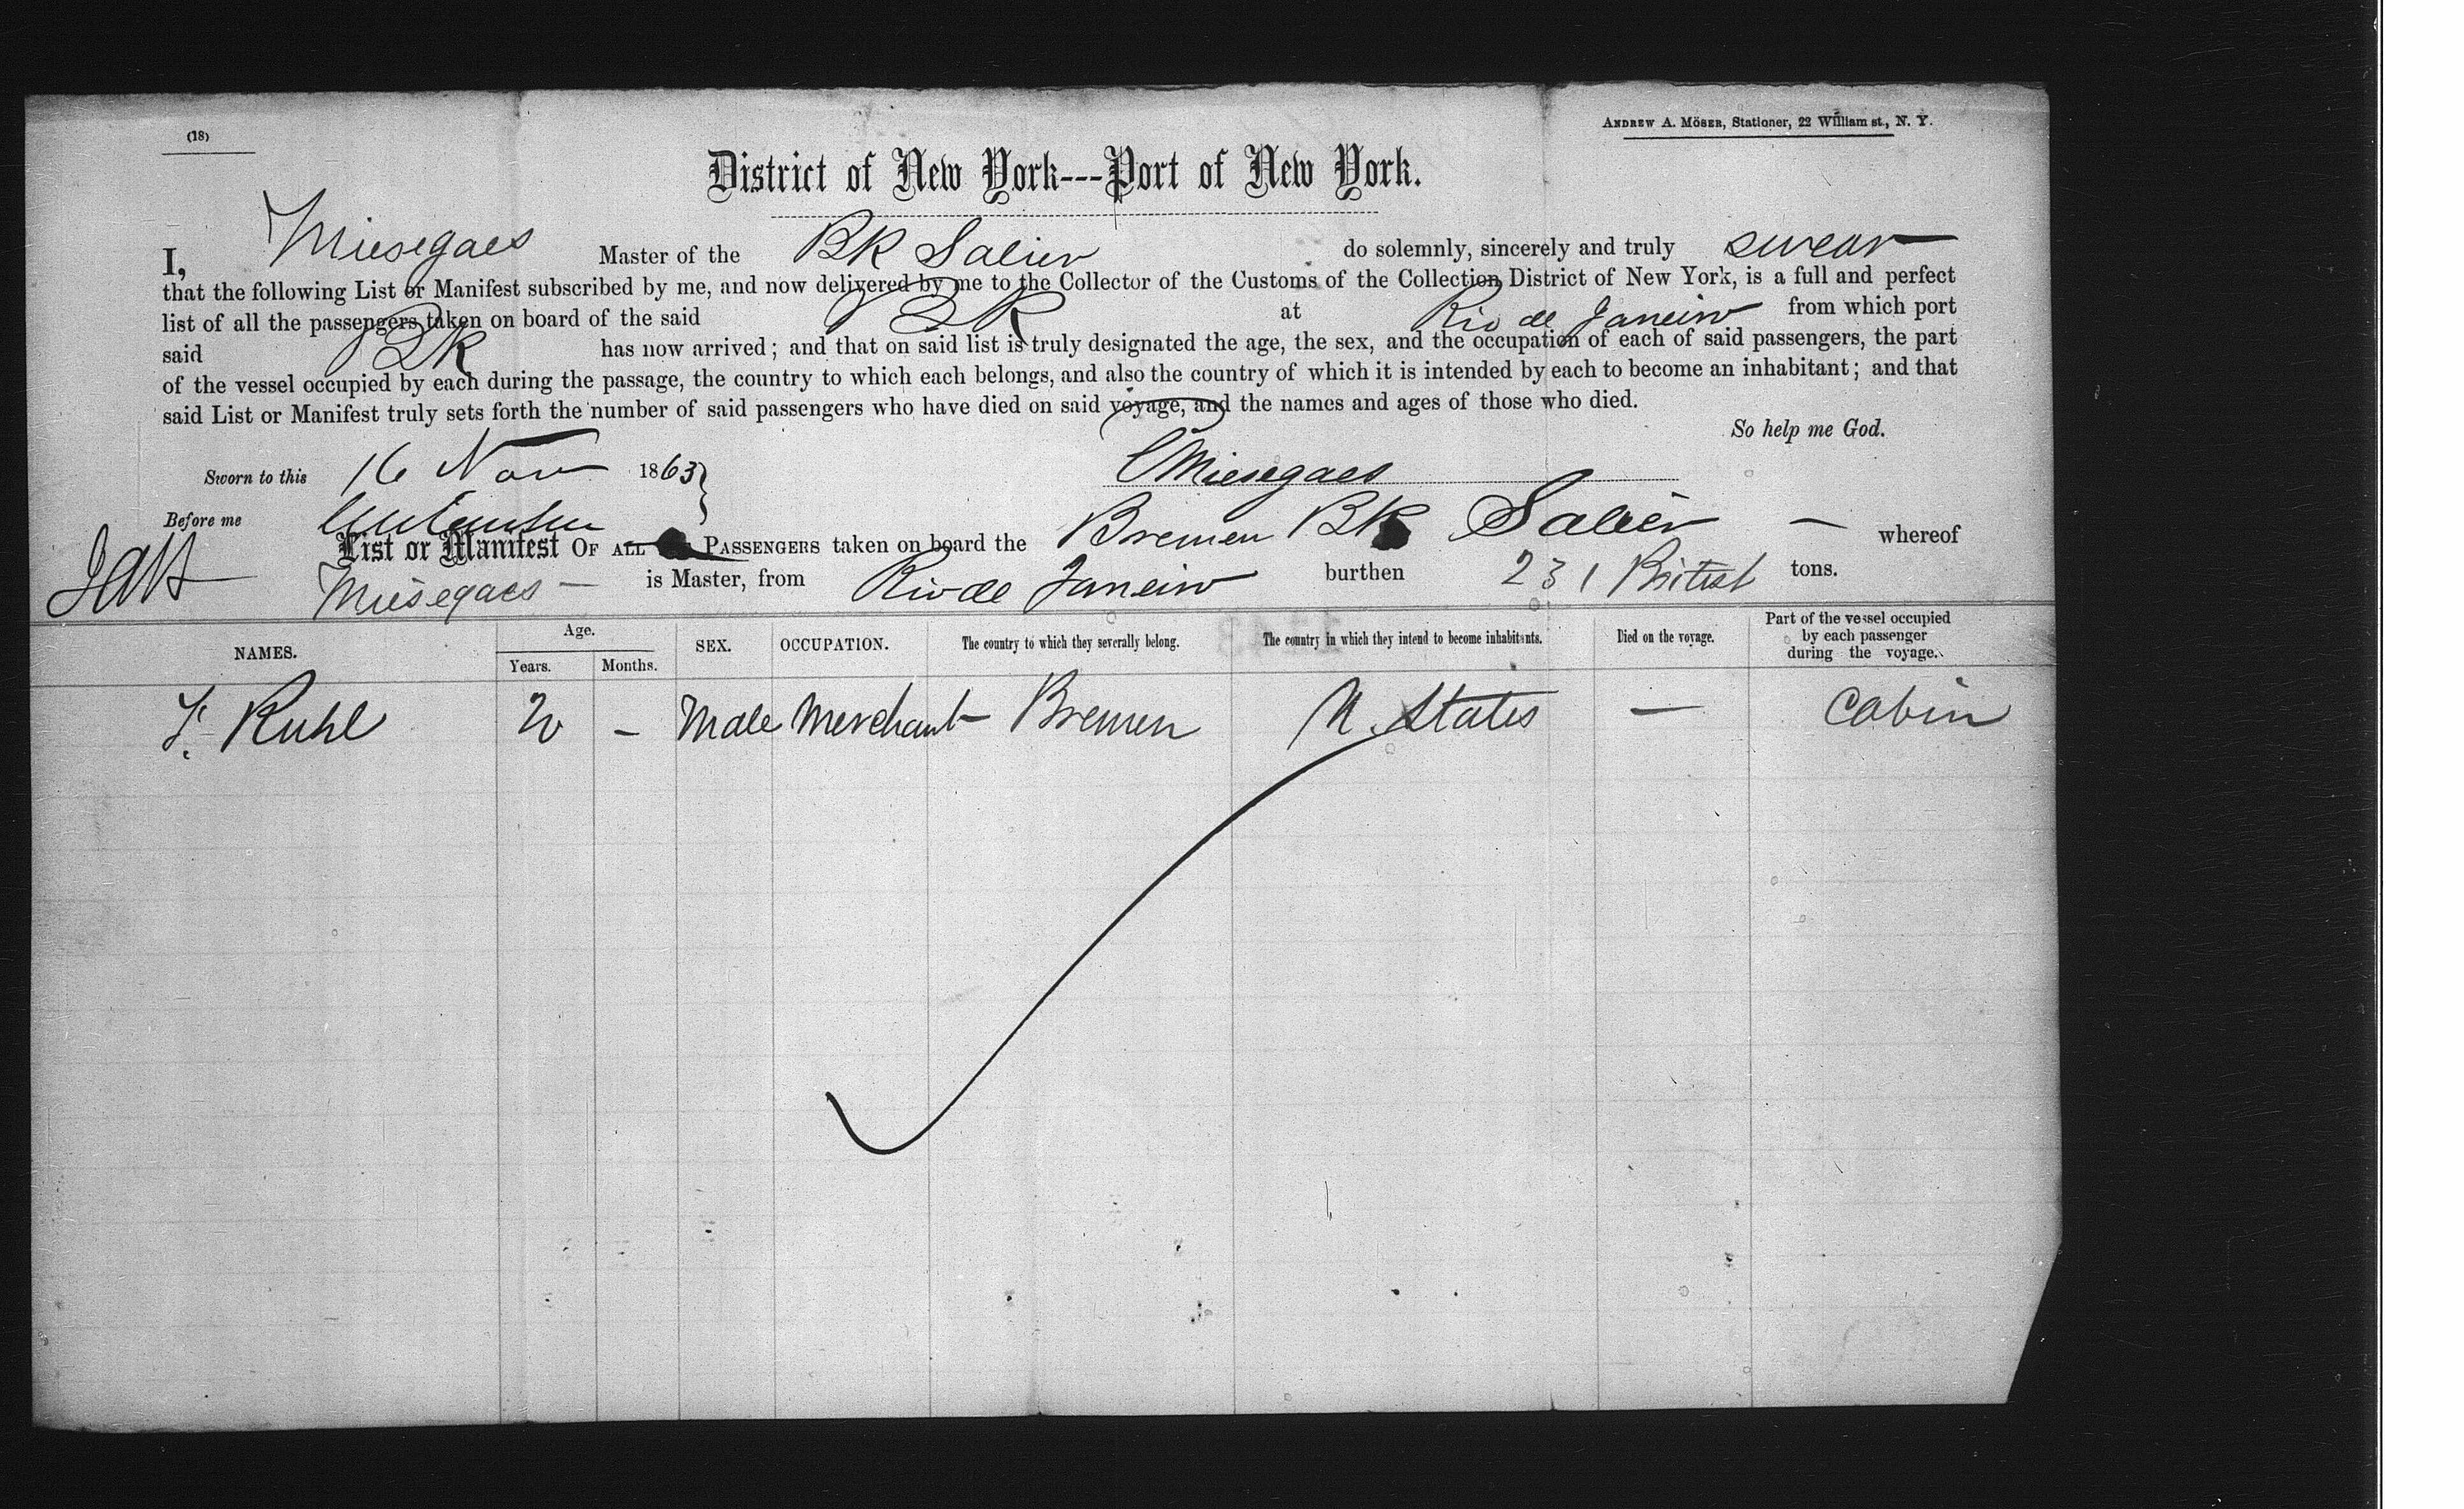 (18)
ANDREW A. MÖSER, Stationer, 22 William st., N. Y.
District of New York---Port of New York.
I, Miesegaes Master of the BK Salier do solemnly, sincerely and truly swear
that the following List or Manifest subscribed by me, and now delivered by me to the Collector of the Customs of the Collection District of New York, is a full and perfect
list of all the passengers taken on board of the said BK at Rio de Janeiro from which port
said BK has now arrived; and that on said list is truly designated the age, the sex, and the occupation of each of said passengers, the part
of the vessel occupied by each during the passage, the country to which each belongs, and also the country of which it is intended by each to become an inhabitant; and that
said List or Manifest truly sets forth the number of said passengers who have died on said voyage, and the names and ages of those who died.
So help me God.
Sworn to this 16 Nov 1863
Miesegaes
Before me
List or Manifest OF ALL PASSENGERS taken on board the Bremen BK Salier — whereof
Miesegaes — is Master, from Rio de Janeiro burthen 231 British tons.
NAMES. Age. Years. Months. SEX. OCCUPATION. The country to which they severally belong. The country in which they intend to become inhabitants. Died on the voyage. Part of the vessel occupied by each passenger during the voyage.
F. Ruhl 20 - Male Merchant Bremen U. States — Cabin